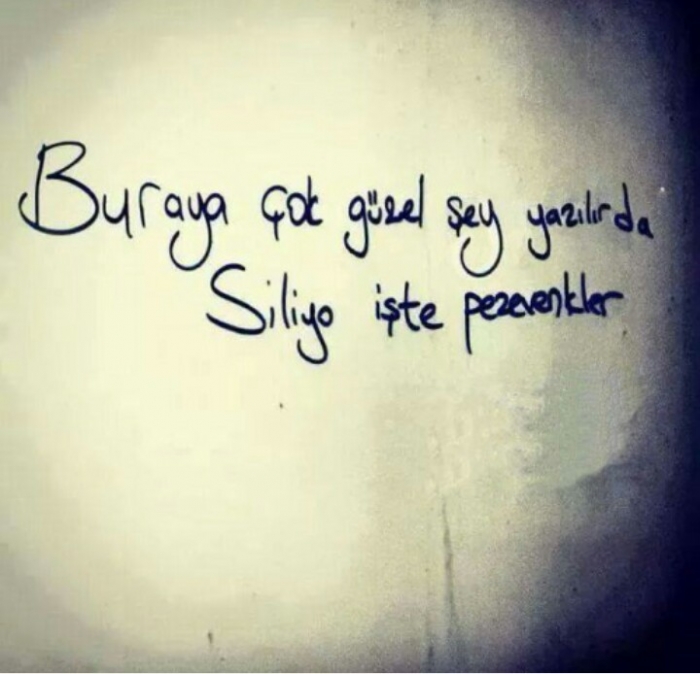 Buraya çok güzel şey yazılırda
Siliyo işte pezevenkler